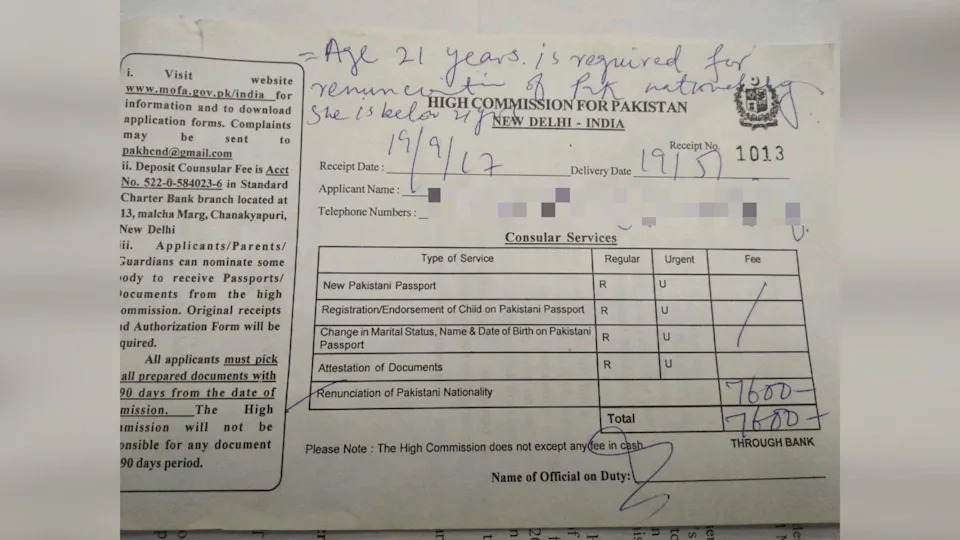 = Age 21 years is required for
renunciation of Pak nationality
She is below 21 yrs
i. Visit website
www.mofa.gov.pk/india for
information and to download
application forms. Complaints
may be sent to
pakhcnd@gmail.com
ii. Deposit Counsular Fee is Acct
No. 522-0-584023-6 in Standard
Charter Bank branch located at
13, malcha Marg, Chanakyapuri,
New Delhi
iii. Applicants/Parents/
Guardians can nominate some
body to receive Passports/
Documents from the high
ommission. Original receipts
nd Authorization Form will be
quired.
All applicants must pick
all prepared documents with
90 days from the date of
mission. The High
mmission will not be
onsible for any document
90 days period.
HIGH COMMISSION FOR PAKISTAN
NEW DELHI - INDIA
Receipt No. 1013
Receipt Date : 19/9/17 Delivery Date 19/5/
Applicant Name :
Telephone Numbers :
Consular Services
Type of Service Regular Urgent Fee
New Pakistani Passport R U
Registration/Endorsement of Child on Pakistani Passport R U
Change in Marital Status, Name & Date of Birth on Pakistani
Passport R U
Attestation of Documents R U
Renunciation of Pakistani Nationality 7600-
Total 7600-
Please Note : The High Commission does not except any fee in cash
THROUGH BANK
Name of Official on Duty: